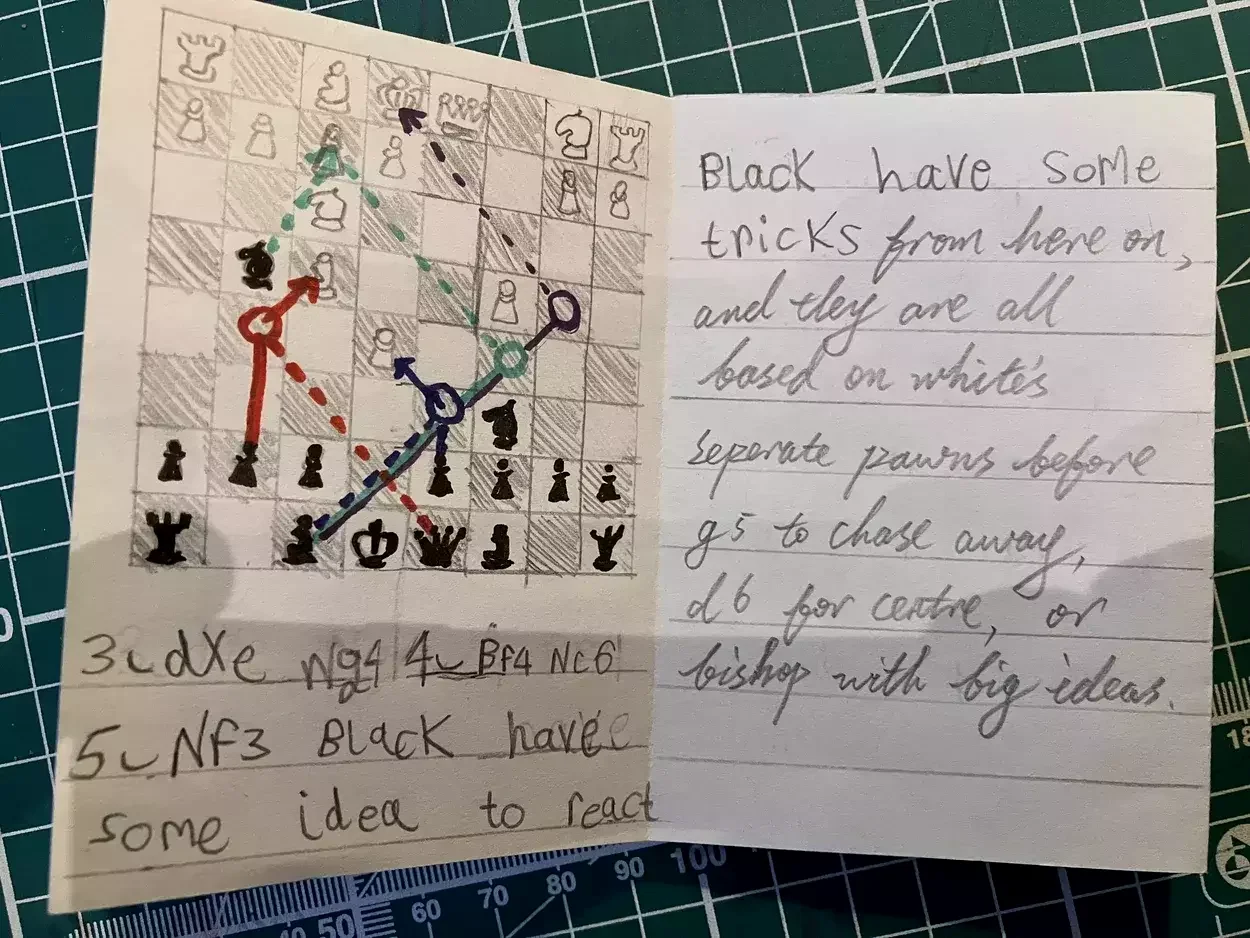 3. dXe Ng4 4. Bf4 Nc6
5. Nf3 BLack have
some idea to react
BLack have some
tricks from here on,
and they are all
based on white's
seperate pawns before
g5 to chase away,
d6 for centre, or
bishop with big ideas.
0
50
60
70
80
90
100
18